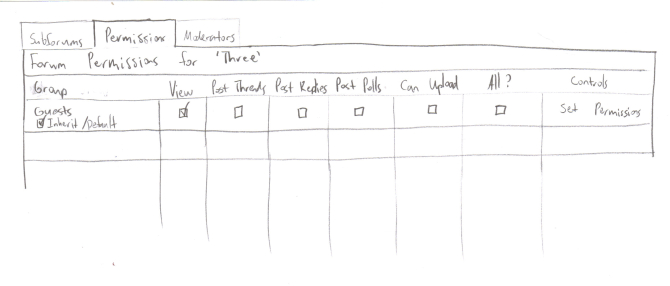 Subforums Permission Moderators
Forum Permissions for 'Three'
Group View Post Threads Post Replies Post Polls Can Upload All? Controls
Guests Set Permission
Inherit/Default